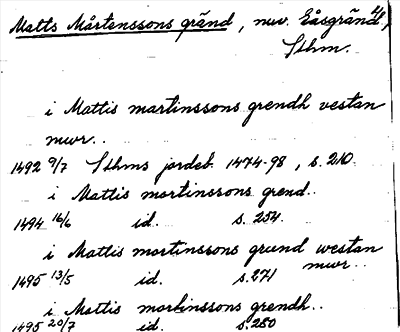 Matts Mårtenssons gränd, nuv. Gåsgränd,
Sthm.
i Mattis martinssons grendh vestan
mwr..
1492 9/7 Sthms jordeb. 1474-98, s. 210.
i Mattis martinssons grend..
1494 16/6 id. s. 254.
i Mattis martinssons grund westan
mwr..
1495 13/5 id. s. 271
i Mattis martinssons grendh..
1495 20/7 id. s. 280